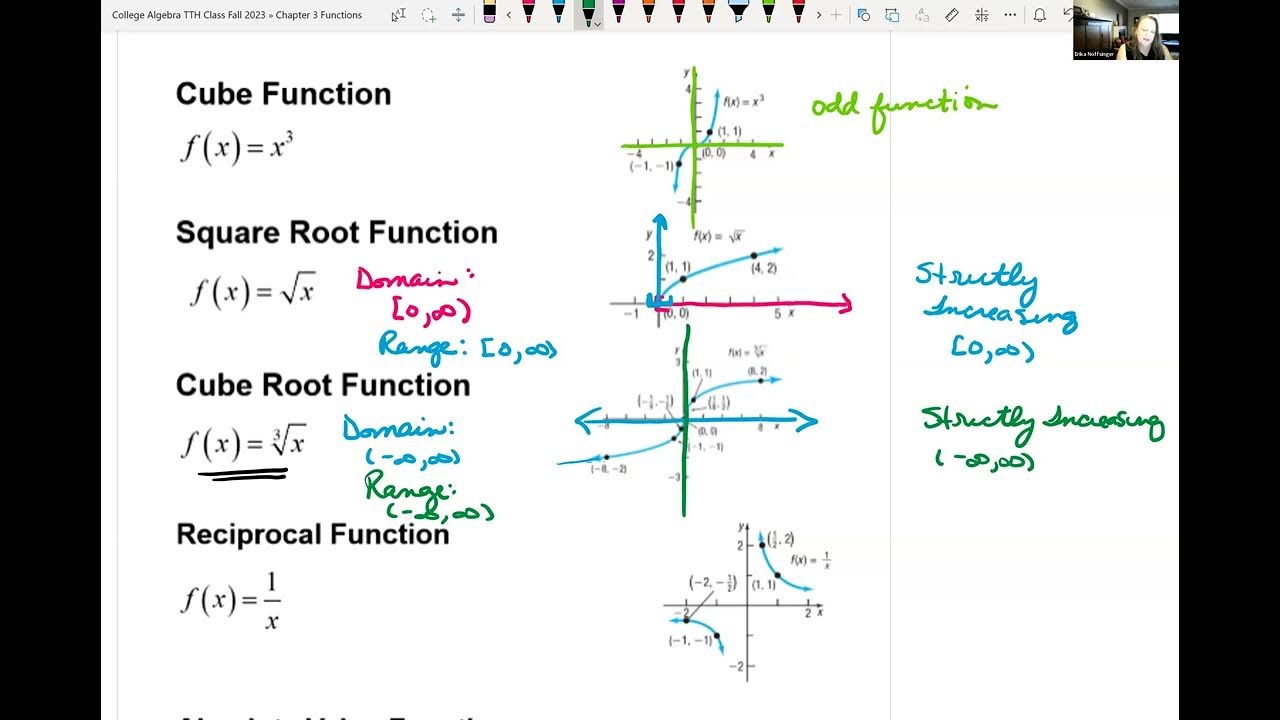 College Algebra TTH Class Fall 2023 » Chapter 3 Functions
Erika Noffsinger
Cube Function
f(x) = x³
y
4
f(x) = x³
(1, 1)
-4
(0, 0)
4
x
(-1, -1)
-4
odd function
Square Root Function
f(x) = √x
Domain:
[0,∞)
Range: [0,∞)
y
2
f(x) = √x
(1, 1)
(4, 2)
-1
(0, 0)
5
x
Strictly
Increasing
[0,∞)
Cube Root Function
f(x) = ∛x
Domain:
(-∞,∞)
Range:
(-∞,∞)
y
3
f(x) = ∛x
(1, 1)
(8, 2)
(-8, -2)
(0, 0)
8
x
(-1, -1)
-8
-3
Strictly Increasing
(-∞,∞)
Reciprocal Function
f(x) = 1/x
y
2
(1/2, 2)
f(x) = 1/x
(-2, -1/2)
(1, 1)
-2
2
x
(-1, -1)
-2